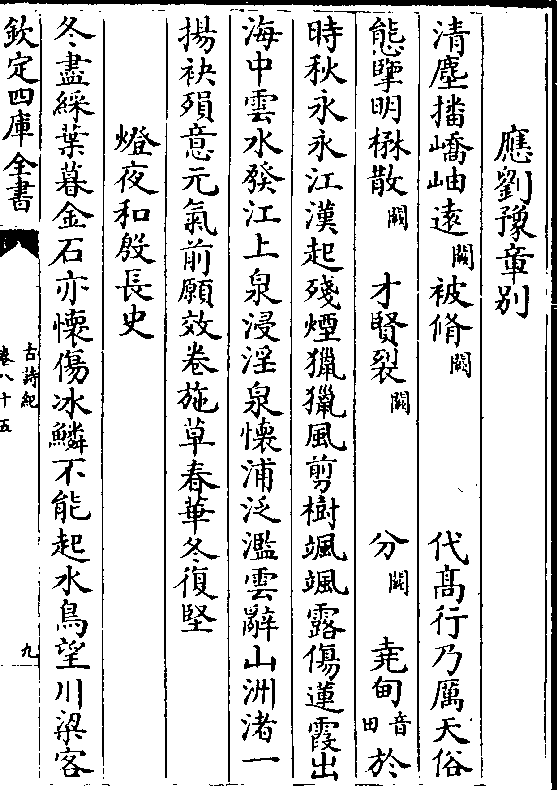 應劉豫章別
清塵播嶠岫遠闕被脩闕 代髙行乃厲天俗
態孽明楙散闕 才賢裂闕 分闕 堯甸音田於
時秋永永江漢起殘煙獵獵風剪樹颯颯露傷蓮霞出
海中雲水發江上泉浸淫泉懷浦泛濫雲辭山洲渚一
揚袂殞意元氣前願效卷施草春華冬復堅
燈夜和殷長史
冬盡綵葉暮金石亦懷傷冰鱗不能起水鳥望川梁客
欽定四庫全書
古詩紀
卷八十五
九